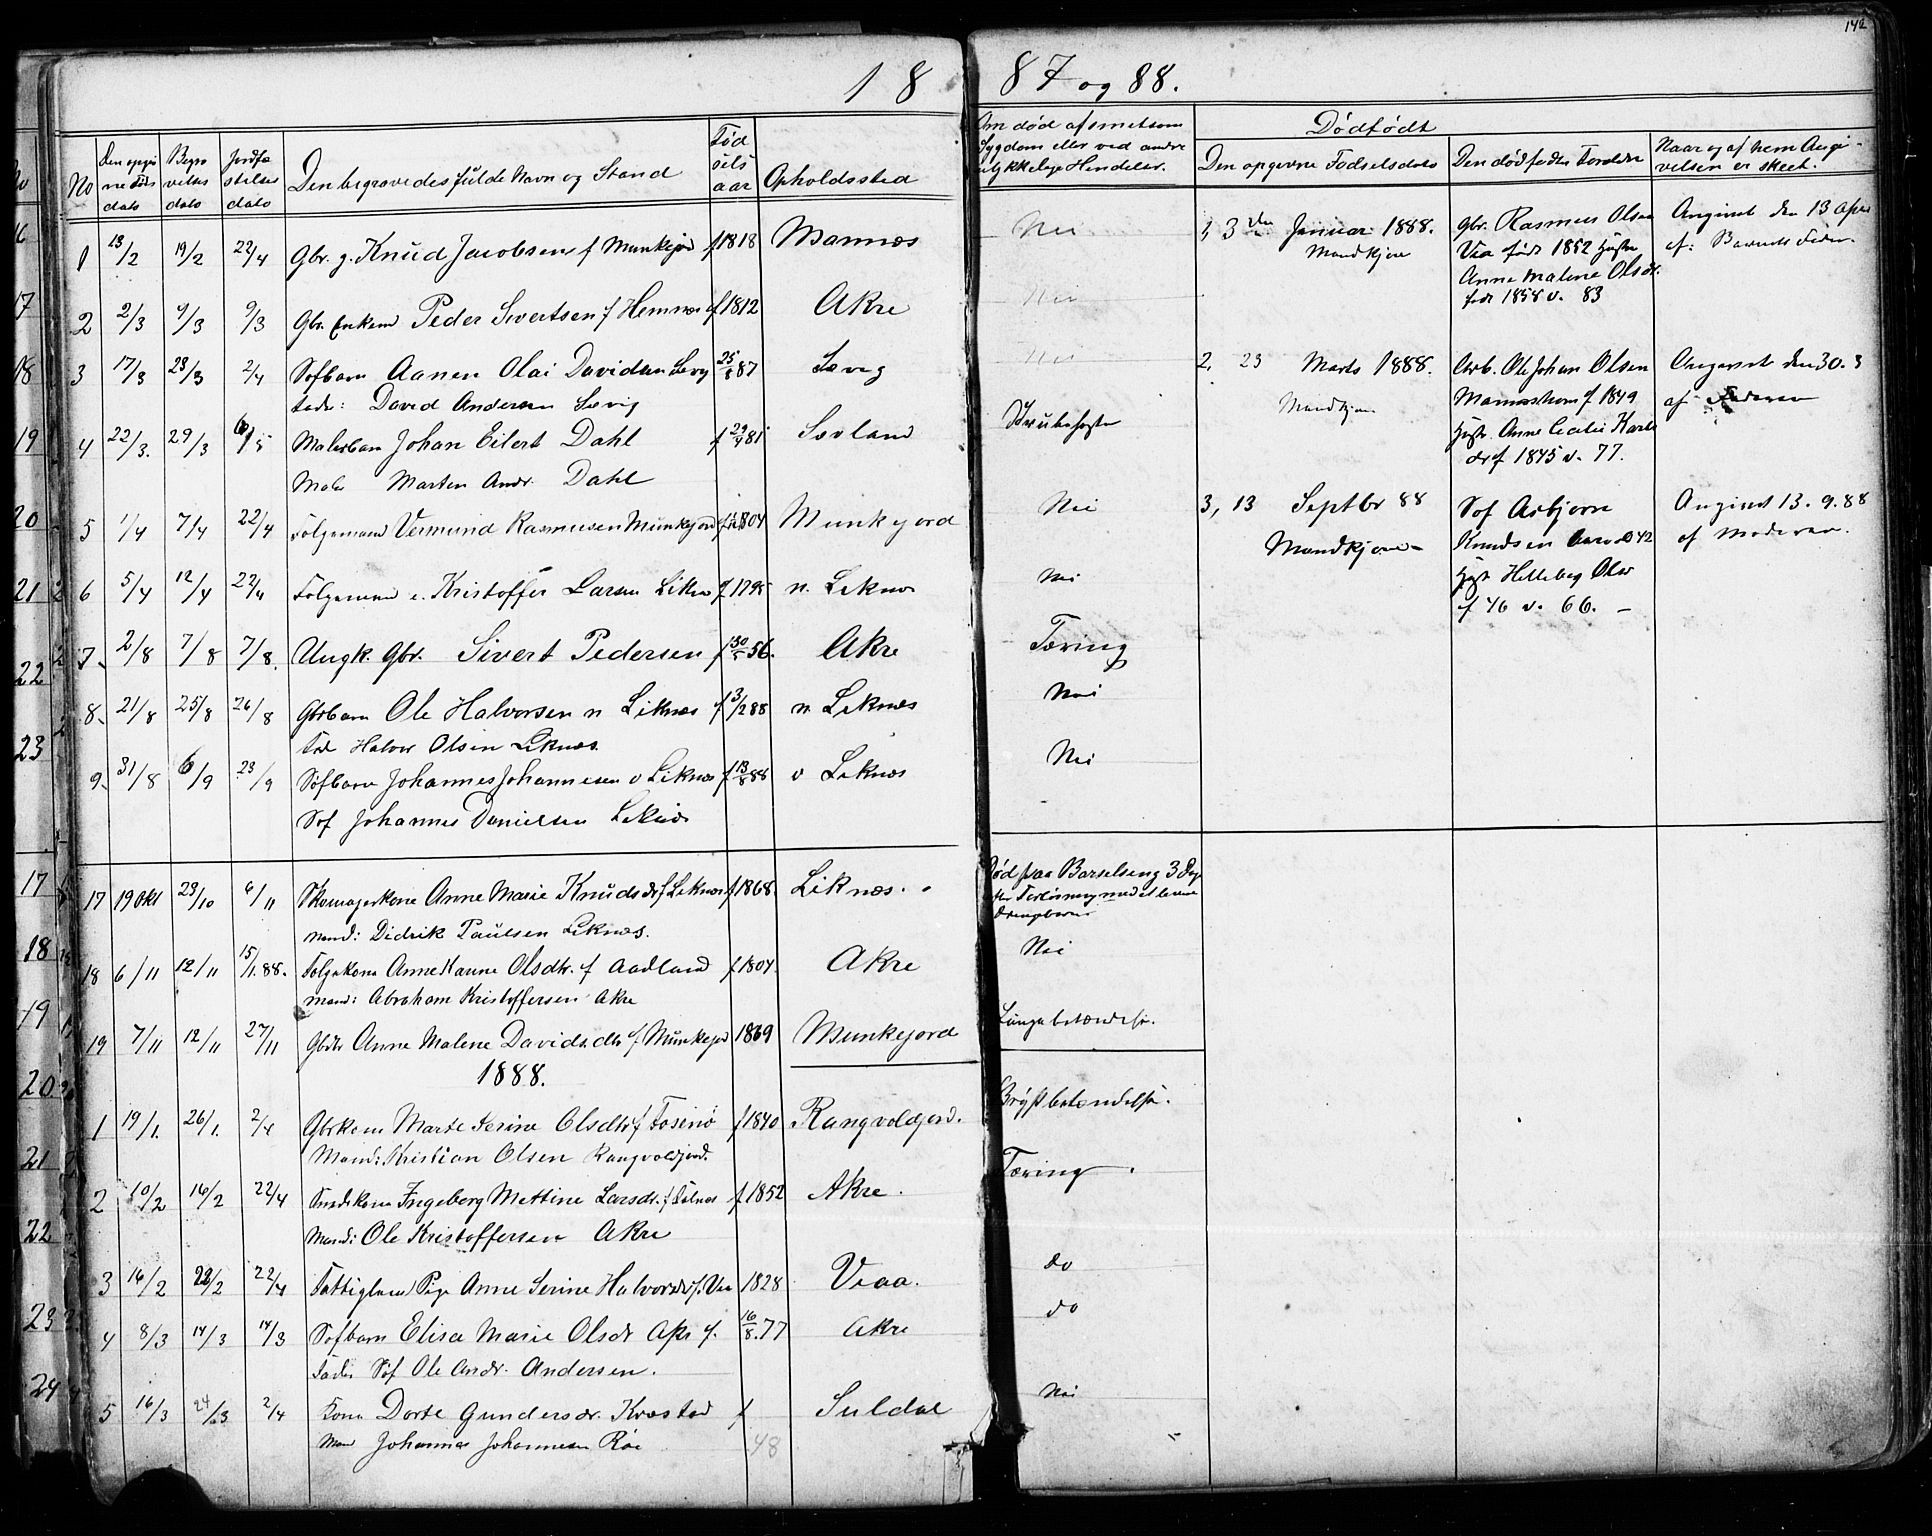 142
18 87 og 88.
No
Den opgivne Døds dato
Begravelses dato
Jordfæstelses dato
Den begravedes fulde Navn og Stand
Fødselsaar
Opholdssted
Om død af smitsom
Sygdom eller ved andre
ulykkelige Hendelser.
Dødfødt
Den opgivne Fødselsdato
Den dødfødtes Forældre
Naar og af hvem Angivelsen er skeet.
1 13/2 19/2 22/4 Gbr. g. Knud Jacobsen f Munkejord f 1818 Mannes Nei
2 2/3 9/3 9/3 Gbr Enkem Peder Sivertsen f Hemnes f 1812 Akre Nei
3 17/3 23/3 2/4 Søfbarn Aanen Olai Davidsen Sevig 25/8 87 Sævig Nei
Fader: David Andersen Sævig
4 22/3. 29/3 Malerbarn Johan Eilert Dahl f 29/9 81 Sævland
Maler Marten Andr. Dahl
5 1/4 7/4 22/4 Følgemand Vermund Rasmusen Munkejord f 1804 Munkejord Nei
6 5/4 12/4 22/4 Følgemand e. Kristoffer Larsen Liknes f 1795 n. Liknes Nei
7. 2/8 7/8 7/8. Ungk. Gbr. Sivert Pedersen f 30/5 56. Akre Tæring
8. 21/8 25/8 26/8 Gbrbarn Ole Halvorsen n Liknes f 3/2 88 n. Liknes Nei
Fad Halvor Olsen Liknes.
9. 31/8 6/9 23/9 Søfbarn Johannes Johannesen v Liknes f 13/8 88 v Liknes Nei
Søf Johannes Danielsen Liknes
1, 3die Januar 1888.
Mandkjøn
Gbr. Rasmus Olsen
Vea født 1852 Hustr
Anne Malene Olsdr.
født 1858 v. 83
Angivet den 13 Apr
af: Barnets Fader.
2, 23 Marts 1888.
Mandkjøn
Arb. Ole Johan Olsen
f 1849
Hustr. Anne Cecilie Karls
dr f 1845 v. 77.
Angivet den 30. 3
af Faderen
3, 13 Septbr 88
Mandkjøn
Søf Asbjørn
Knudsen
Hustr Helleberg Olsdr
f 46 v. 66.
Angivet 13. 9. 88
af Moderen.
17 19 Okt 23/10 6/11 Skomagerkone Anne Marie Knudsdr f Liknes f 1868. Liknes.
Mand: Didrik Paulsen Liknes.
Død paa Barselseng 3 Dage
efter Forløsning med et levende
Drengebarn
18 6/11 12/11 15/1.88. Følgekone Anne Karine Olsdtr. f Aadland f 1807. Akre Nei
Mand: Abraham Kristoffersen Akre
19 7/11 12/11 27/11 Gbdtr Anne Malene Davidsdtr f Munkejor 1869 Munkejord Lungebetændelse.
1888.
1 19/1. 26/1. 2/4 Gbrkone Marte Serine Olsdtr f Fosenø f 1840 Rangvoldjord. Brystbetændelse.
Mand: Kristian Olsen Rangvoldjord.
2 10/2 16/2 22/4 Smedkone Ingeborg Mettine Larsdr. f 1852 Akre. Tæring.
Mand: Ole Kristoffersen Akre
3 16/2 22/2 22/4 Fattiglem Pige Anne Serine Halvorsdr f. Vea 1828 Veaa. do
4 8/3 14/3 14/3 Søfbarn Elisa Marie Olsdr f. 16/8. 77 Akre do
Fader Søf Ole Andr. Andersen.
5 16/3 24/3 2/4 Kone Dorte Gundersdr. f Suldal Nei
Mand Johannes Johannesen Røe 48
16
17
18
19
20
21
22
23
17
18
19
20
21
22
23
24